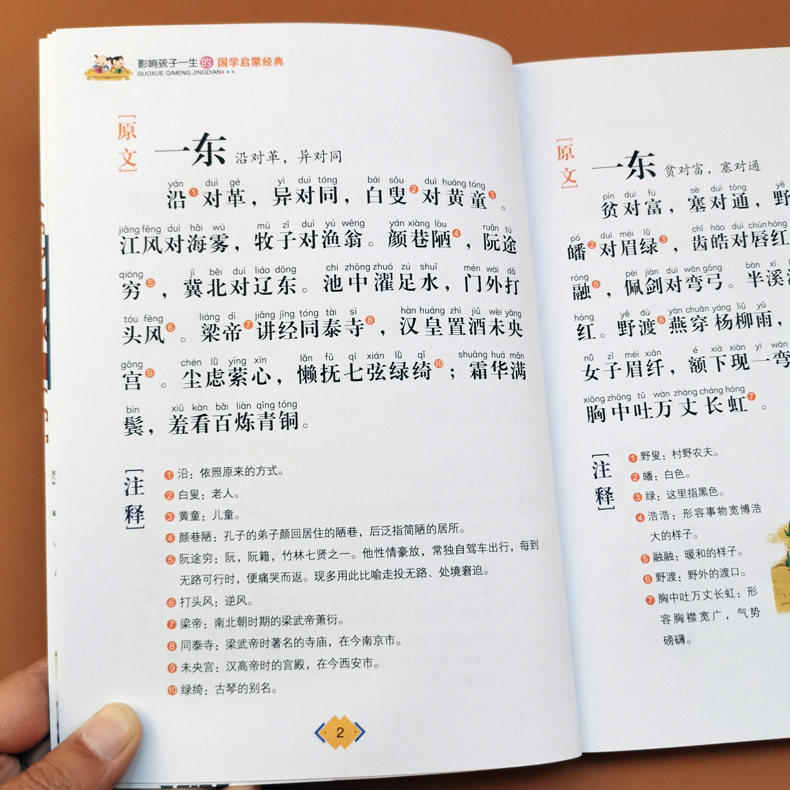 影响孩子一生的国学启蒙经典
GUOXUE QIMENG JINGDIAN
[原文]
一东 沿对革，异对同
yán duì gé yì duì tóng bái sǒu duì huáng tóng
沿❶对革，异对同，白叟❷对黄童❸。
jiāng fēng duì hǎi wù mù zǐ duì yú wēng yán xiàng lòu ruǎn tú
江风对海雾，牧子对渔翁。颜巷陋❹，阮途
qióng jì běi duì liáo dōng chí zhōng zhuó zú shuǐ mén wài dǎ
穷❺，冀北对辽东。池中濯足水，门外打
tóu fēng liáng dì jiǎng jīng tóng tài sì hàn huáng zhì jiǔ wèi yāng
头风❻。梁帝❼讲经同泰寺❽，汉皇置酒未央
gōng chén lǜ yíng xīn lǎn fǔ qī xián lǜ qǐ shuāng huá mǎn
宫❾。尘虑萦心，懒抚七弦绿绮❿；霜华满
bìn xiū kàn bǎi liàn qīng tóng
鬓，羞看百炼青铜。
[注释]
❶沿：依照原来的方式。
❷白叟：老人。
❸黄童：儿童。
❹颜巷陋：孔子的弟子颜回居住的陋巷，后泛指简陋的居所。
❺阮途穷：阮，阮籍，竹林七贤之一。他性情豪放，常独自驾车出行，每到
无路可行时，便痛哭而返。现多用此比喻走投无路、处境窘迫。
❻打头风：逆风。
❼梁帝：南北朝时期的梁武帝萧衍。
❽同泰寺：梁武帝时著名的寺庙，在今南京市。
❾未央宫：汉高帝时的宫殿，在今西安市。
❿绿绮：古琴的别名。
2
[原文]
一东 贫对富，塞对通
pín duì fù sè duì tōng yě
贫对富，塞对通，野
pó duì méi lǜ chǐ hào duì chún hóng
皤❷对眉绿❸，齿皓对唇红
róng pèi jiàn duì wān gōng bàn xī
融❺，佩剑对弯弓。半溪
hóng yě dù yàn chuān yáng liǔ yǔ
红。野渡❻燕穿杨柳雨，
nǚ zǐ méi xiān é xià xiàn yì wān
女子眉纤，额下现一弯
xiōng zhōng tǔ wàn zhàng cháng hóng
胸中吐万丈长虹❼。
[注释]
❶野叟：村野农夫。
❷皤：白色。
❸绿：这里指黑色。
❹浩浩：形容事物宽博浩
大的样子。
❺融融：暖和的样子。
❻野渡：野外的渡口。
❼胸中吐万丈长虹：形
容胸襟宽广，气势
磅礴。